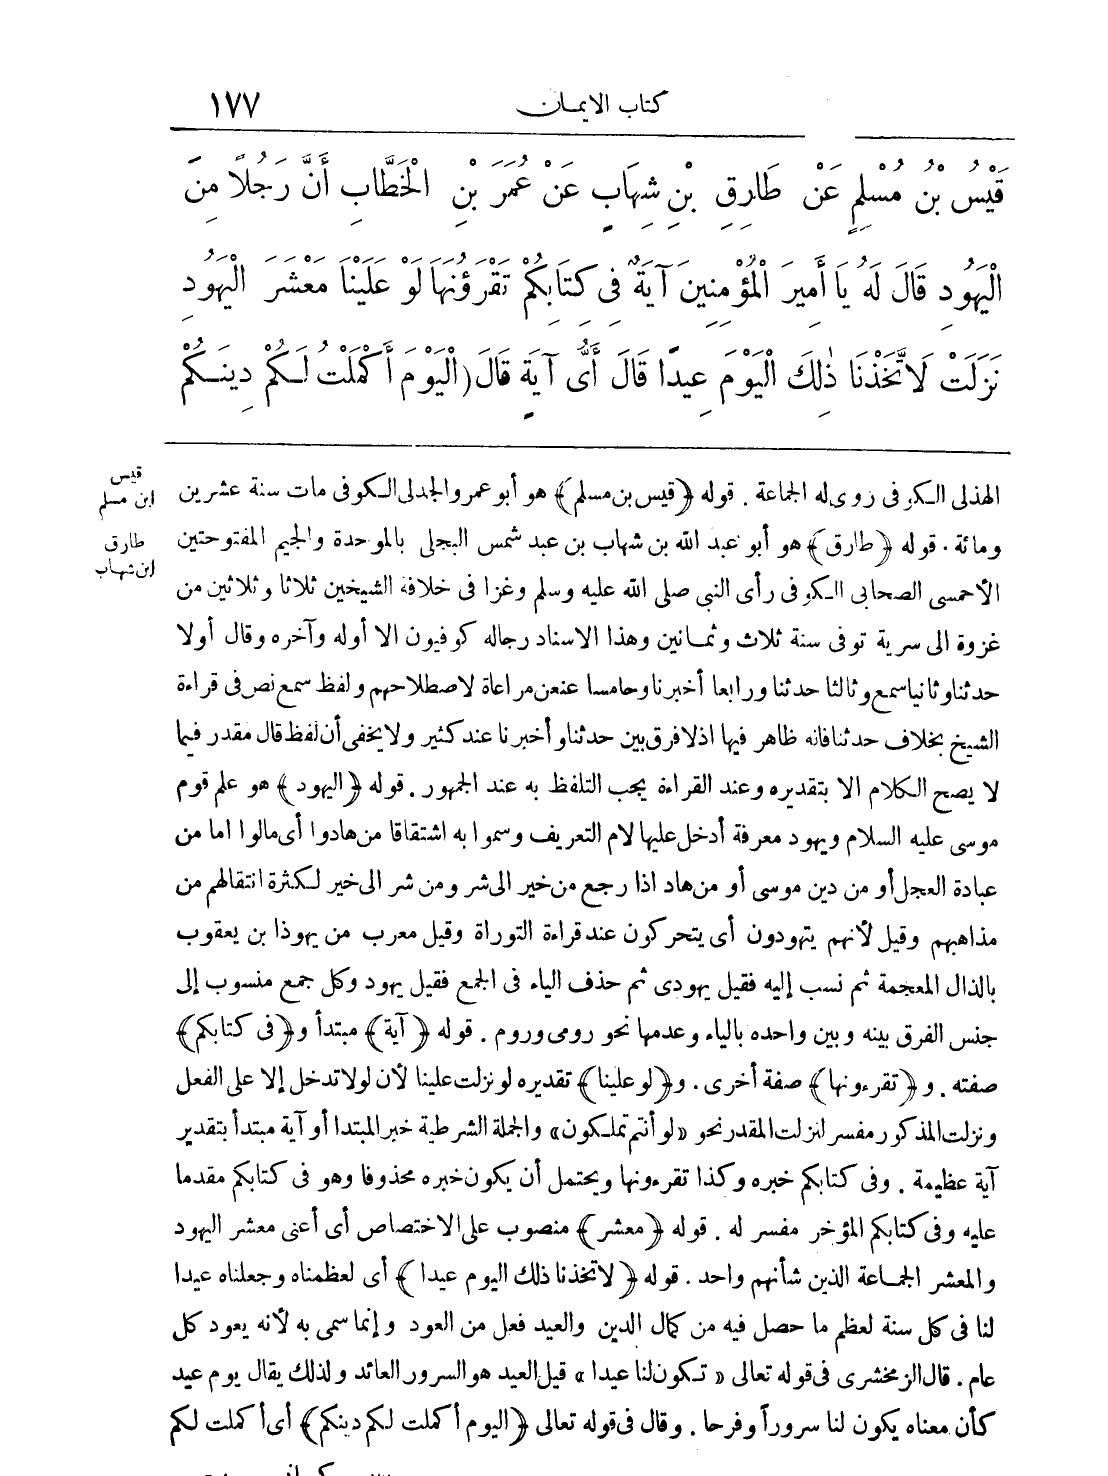 كتاب الايمان ١٧٧
قَيْسُ بْنُ مُسْلِمٍ عَنْ طَارِقِ بْنِ شِهَابٍ عَنْ عُمَرَ بْنِ الْخَطَّابِ أَنَّ رَجُلًا مِنَ
الْيَهُودِ قَالَ لَهُ يَا أَمِيرَ الْمُؤْمِنِينَ آيَةٌ فِى كِتَابِكُمْ تَقْرَؤُنَهَا لَوْ عَلَيْنَا مَعْشَرَ الْيَهُودِ
نَزَلَتْ لَاتَّخَذْنَا ذٰلِكَ الْيَوْمَ عِيدًا قَالَ أَىُّ آيَةٍ قَالَ (الْيَوْمَ أَكْمَلْتُ لَكُمْ دِينَكُمْ
الهذلى الكوفى روى له الجماعة . قوله ﴿قيس بن مسلم﴾ هو أبو عمرو الجدلى الكوفى مات سنة عشرين
قيس
ابن مسلم
ومائة . قوله ﴿طارق﴾ هو أبو عبد الله بن شهاب بن عبد شمس البجلى بالموحدة والجيم المفتوحتين
طارق
ابن شهاب
الأحمسى الصحابى الكوفى رأى النبى صلى الله عليه وسلم وغزا فى خلافة الشيخين ثلاثا وثلاثين من
غزوة الى سرية توفى سنة ثلاث وثمانين وهذا الاسناد رجاله كوفيون الا أوله وآخره وقال أولا
حدثنا وثانيا سمع وثالثا حدثنا ورابعا أخبرنا وخامسا عنعن مراعاة لاصطلاحهم ولفظ سمع نص فى قراءة
الشيخ بخلاف حدثنا فانه ظاهر فيها اذ لا فرق بين حدثنا وأخبرنا عند كثير ولا يخفى أن لفظ قال مقدر فيما
لا يصح الكلام الا بتقديره وعند القراءة يجب التلفظ به عند الجمهور . قوله ﴿اليهود﴾ هو علم قوم
موسى عليه السلام ويهود معرفة أدخل عليها لام التعريف وسموا به اشتقاقا من هادوا أى مالوا اما من
عبادة العجل أو من دين موسى أو من هاد اذا رجع من خير الى شر ومن شر الى خير لكثرة انتقالهم من
مذاهبهم وقيل لأنهم يتهودون أى يتحركون عند قراءة التوراة وقيل معرب من يهوذا بن يعقوب
بالذال المعجمة ثم نسب إليه فقيل يهودى ثم حذف الياء فى الجمع فقيل يهود وكل جمع منسوب إلى
جنس الفرق بينه وبين واحده بالياء وعدمها نحو رومى وروم . قوله ﴿آية﴾ مبتدأ و﴿فى كتابكم﴾
صفته . و﴿تقرءونها﴾ صفة أخرى . و﴿لو علينا﴾ تقديره لو نزلت علينا لأن لو لا تدخل إلا على الفعل
ونزلت المذكور مفسر لنزلت المقدر نحو «لو أنتم تملكون» والجملة الشرطية خبر المبتدا أو آية مبتدأ بتقدير
آية عظيمة . وفى كتابكم خبره وكذا تقرءونها ويحتمل أن يكون خبره محذوفا وهو فى كتابكم مقدما
عليه وفى كتابكم المؤخر مفسر له . قوله ﴿معشر﴾ منصوب على الاختصاص أى أعنى معشر اليهود
والمعشر الجماعة الذين شأنهم واحد . قوله ﴿لاتخذنا ذلك اليوم عيدا﴾ أى لعظمناه وجعلناه عيدا
لنا فى كل سنة لعظم ما حصل فيه من كمال الدين والعيد فعل من العود وإنما سمى به لأنه يعود كل
عام . قال الزمخشرى فى قوله تعالى «تكون لنا عيدا» قيل العيد هو السرور العائد ولذلك يقال يوم عيد
كأن معناه يكون لنا سروراً وفرحا . وقال فى قوله تعالى ﴿اليوم أكملت لكم دينكم﴾ أى أكملت لكم